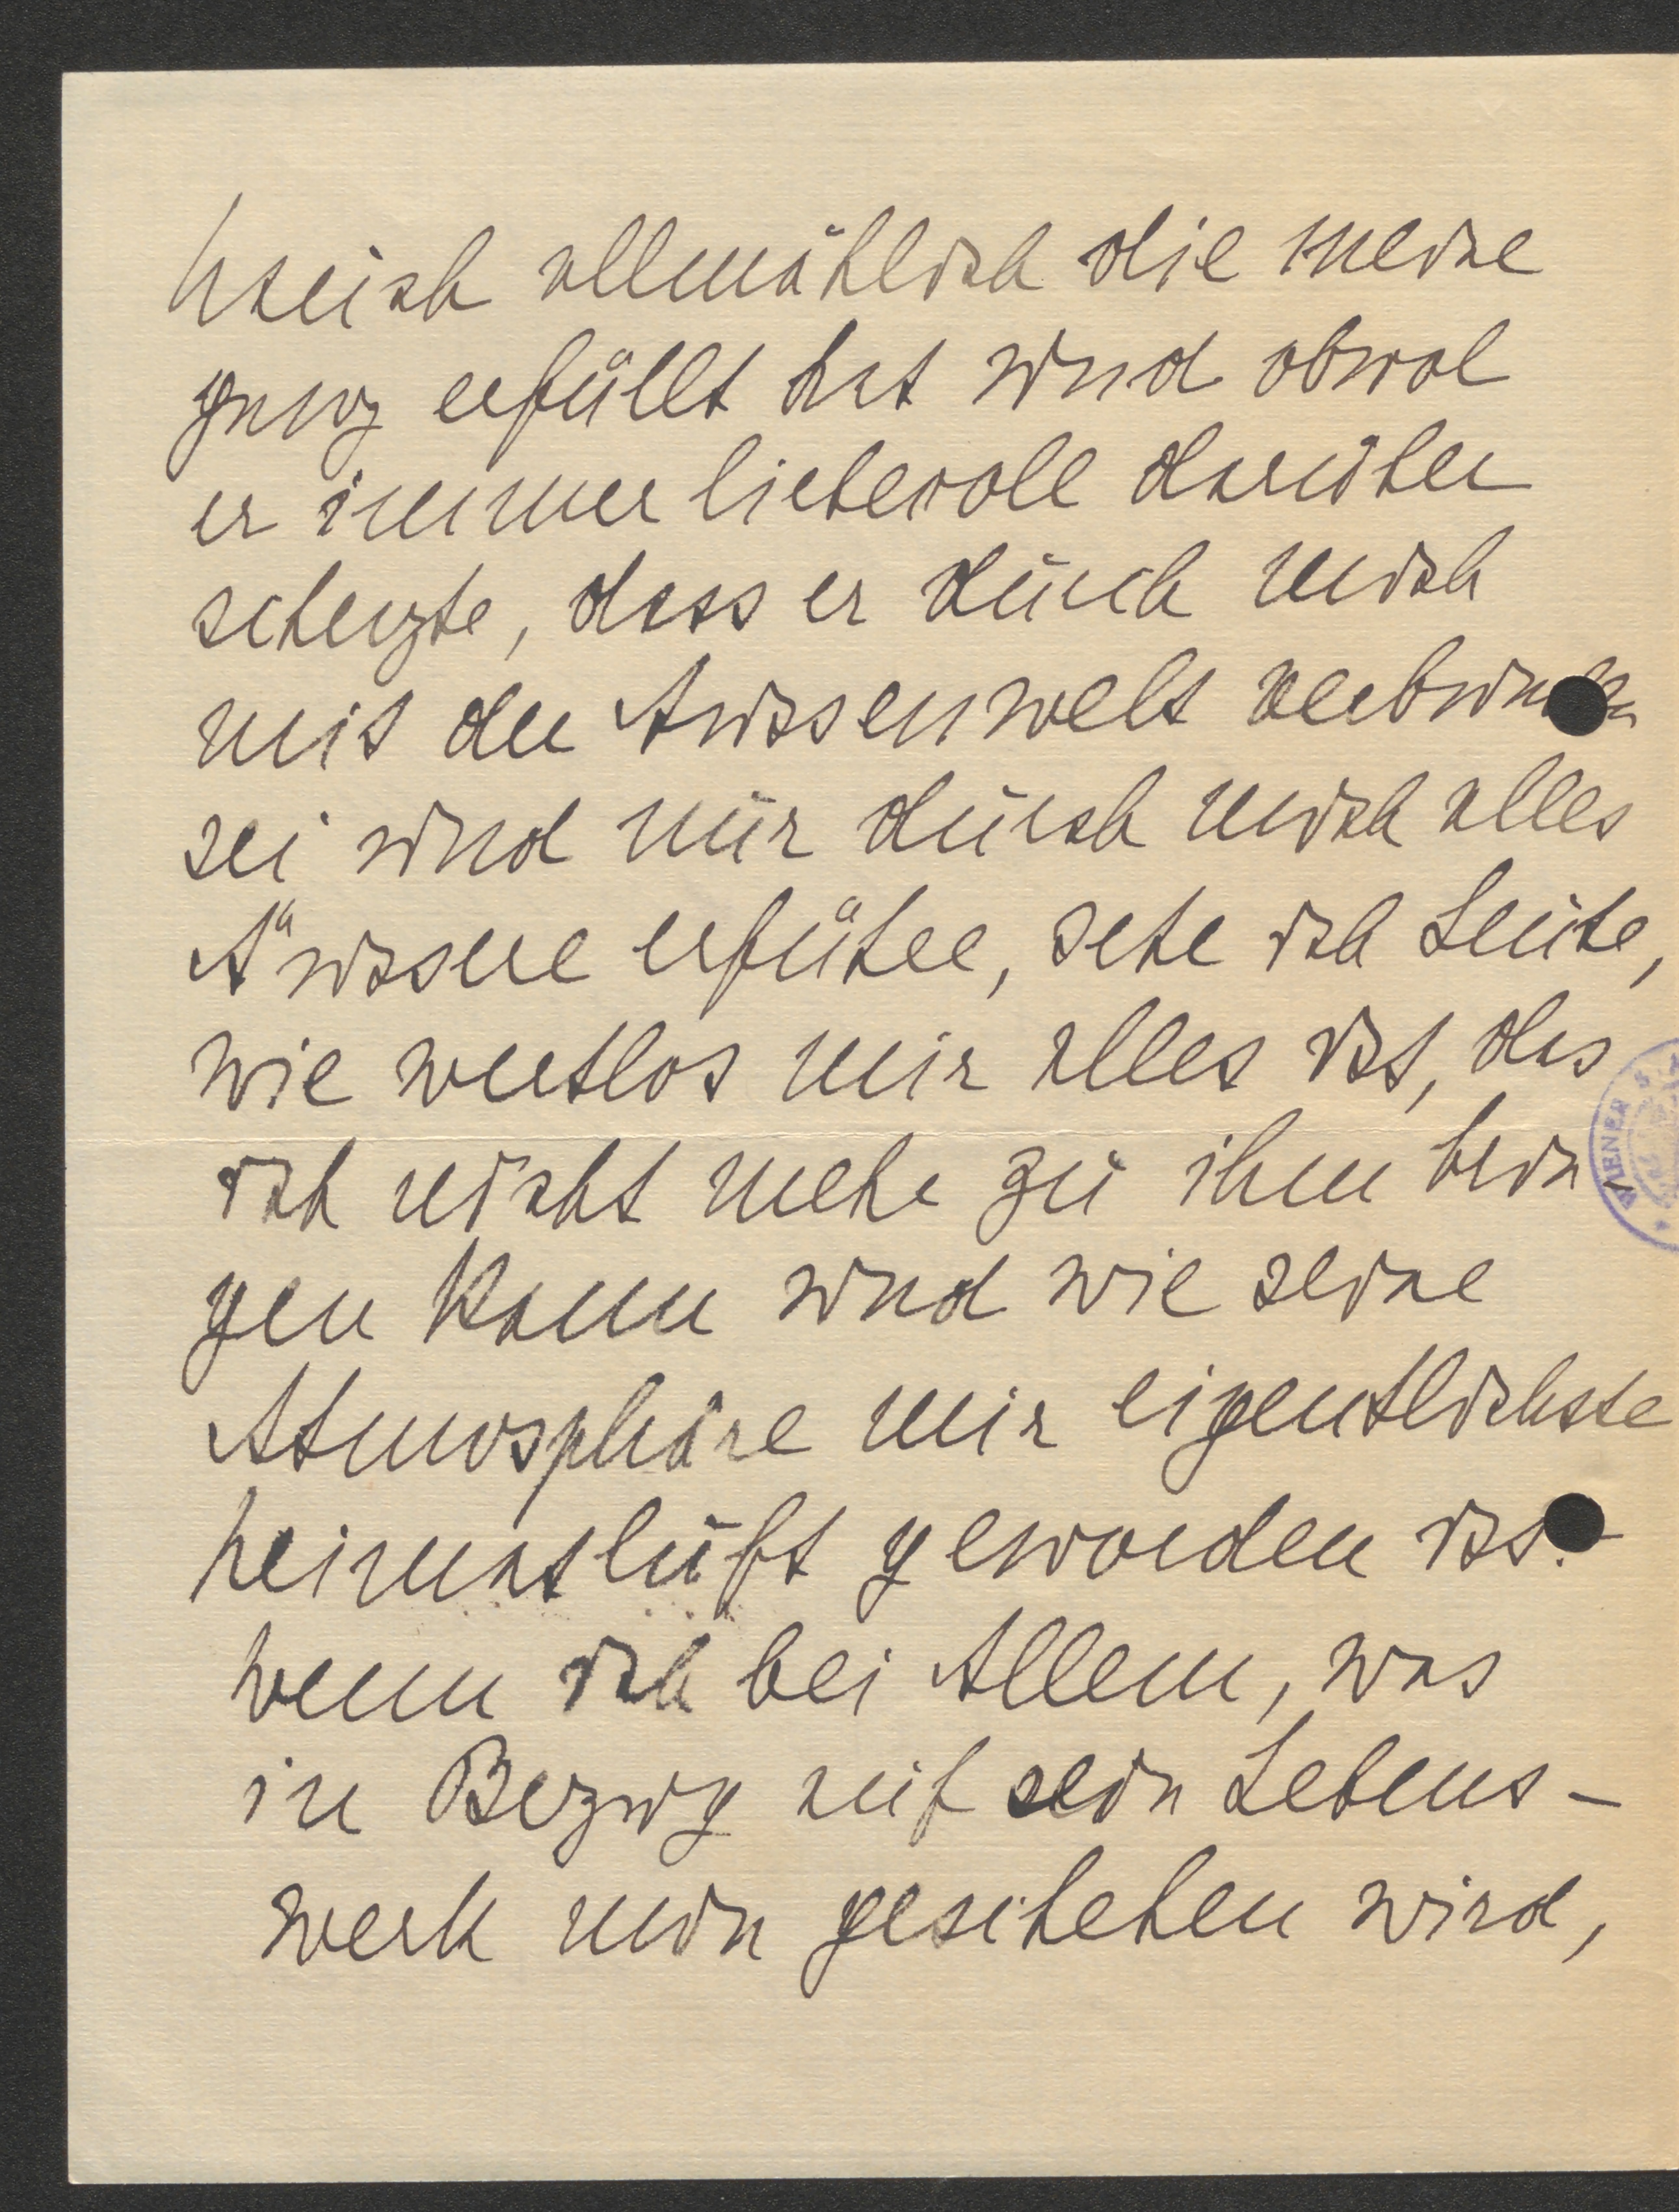 hauch allmählich die meine
ganz erfüllt hat und obwol
er immer liebevoll darüber
scherzte, dass er durch mich
mit der Aussenwelt verbunden
sei und nur durch mich alles
Äussere erführe, sehe ich heute,
wie wertlos mir alles ist, das
ich nicht mehr zu ihm brin-
gen kann und wie seine
Atmosphäre mir eigentlichste
Heimatluft geworden ist.
Wenn ich bei Allem, was
in Bezug auf sein Lebens-
werk nun geschehen wird,
WIENER